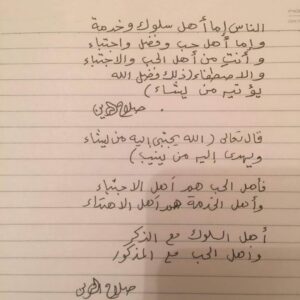 الناس إما أهل سلوك وخدمة
وإما أهل حب وفضل واجتباء
وأنت من أهل الحب والاجتباء
والاصطفاء (ذلك فضل الله
يؤتيه من يشاء)
صلاح الدين
قال تعالى (الله يجتبي إليه من يشاء
ويهدي إليه من ينيب)
فأهل الحب هم أهل الاجتباء
وأهل الخدمة هم أهل الاهتداء
أهل السلوك مع الذكر
وأهل الحب مع المذكور
صلاح الدين